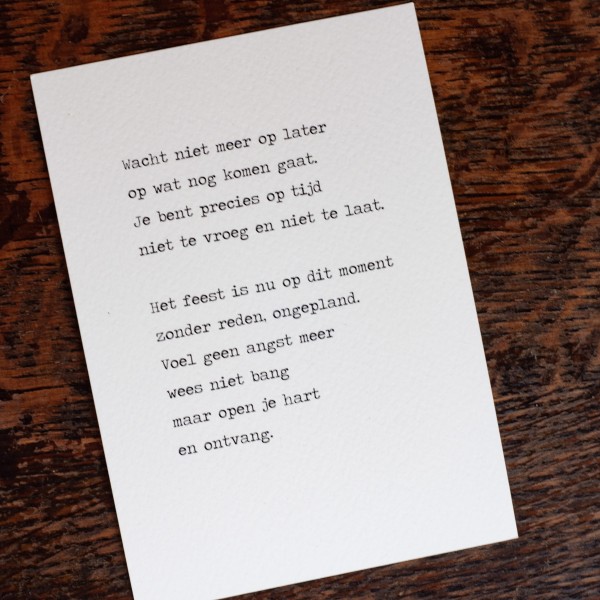 Wacht niet meer op later
op wat nog komen gaat.
Je bent precies op tijd
niet te vroeg en niet te laat.

Het feest is nu op dit moment
zonder reden, ongepland.
Voel geen angst meer
wees niet bang
maar open je hart
en ontvang.